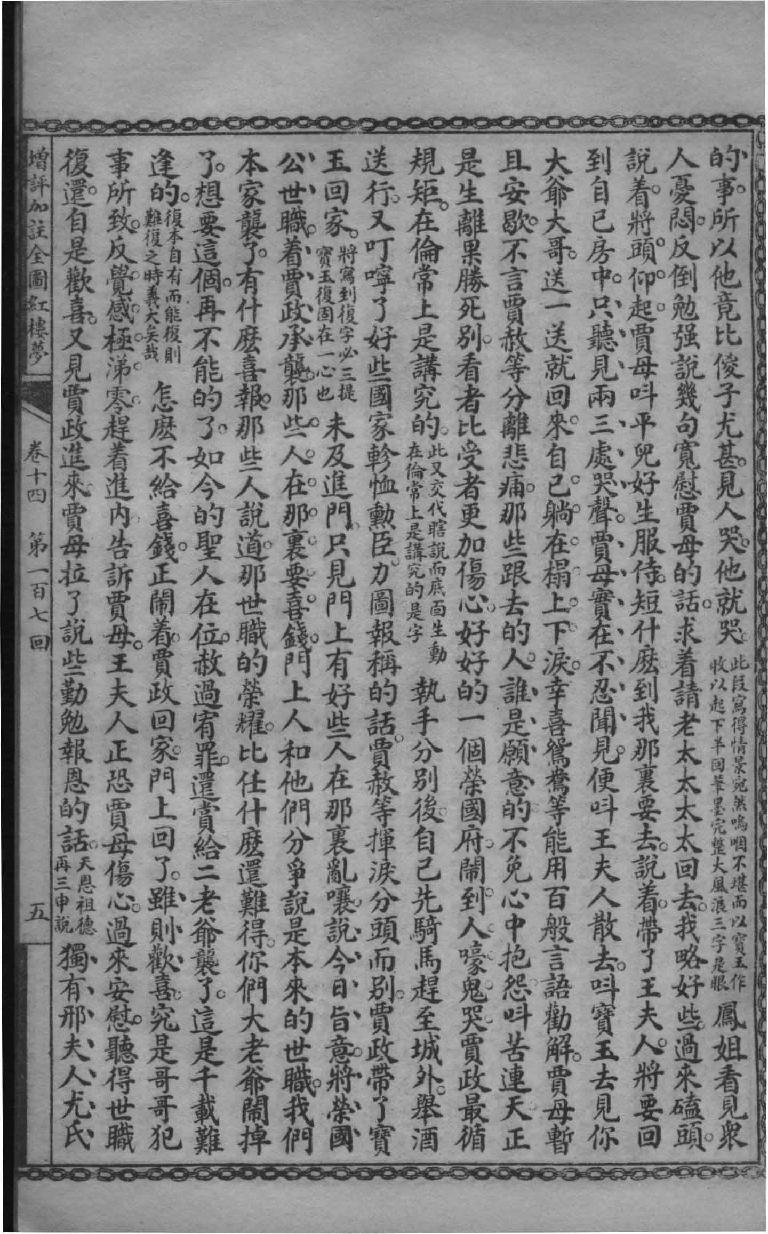 的事所以他竟比傻子尤甚見人哭他就哭此段寫得情景宛然嗚咽不堪而以寶玉作收以起下半回筆墨完整大風浪三字是眼鳳姐看見衆
人憂悶反倒勉强說幾句寬慰賈母的話求着請老太太太太回去我略好些過來磕頭
說着將頭仰起賈母呌平兒好生服侍短什麽到我那裏要去說着帶了王夫人將要回
到自己房中只聽見兩三處哭聲賈母實在不忍聞見便呌王夫人散去呌寶玉去見你
大爺大哥送一送就回來自己躺在榻上下淚幸喜鴛鴦等能用百般言語勸解賈母暫
且安歇不言賈赦等分離悲痛那些跟去的人誰是願意的不免心中抱怨呌苦連天正
是生離果勝死别看者比受者更加傷心好好的一個榮國府鬧到人嚎鬼哭賈政最循
規矩在倫常上是講究的此又交代瞎說而底面生動在倫常上是講究的是字執手分别後自己先騎馬趕至城外舉酒
送行又叮嚀了好些國家軫恤勳臣力圖報稱的話賈赦等揮淚分頭而别賈政帶了寶
玉回家將寫到復字必三提寶玉復固在一心也未及進門只見門上有好些人在那裏亂嚷說今日旨意將榮國
公世職着賈政承襲那些人在那裏要喜錢門上人和他們分爭說是本來的世職我們
本家襲了有什麽喜報那些人說道那世職的榮耀比任什麽還難得你們大老爺鬧掉
了想要這個再不能的了如今的聖人在位赦過宥罪還賞給二老爺襲了這是千載難
逢的復本自有而能復則難復之時義大矣哉怎麽不給喜錢正鬧着賈政回家門上回了雖則歡喜究是哥哥犯
事所致反覺感極涕零趕着進內告訴賈母王夫人正恐賈母傷心過來安慰聽得世職
復還自是歡喜又見賈政進來賈母拉了說些勤勉報恩的話天恩祖德再三申說獨有邢夫人尤氏
增評加註全圖紅樓夢 卷十四 第一百七回 五